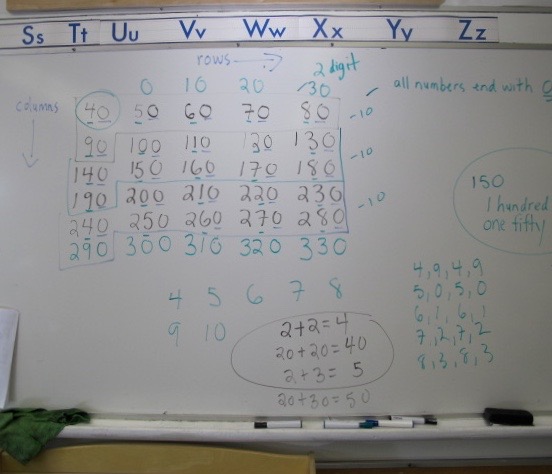 Ss Tt Uu Vv Ww Xx Yy Zz
rows
2 digit
0 10 20 30
all numbers end with 0
columns
40 50 60 70 80 -10
90 100 110 120 130 -10
140 150 160 170 180
190 200 210 220 230 -10
240 250 260 270 280
290 300 310 320 330
150
1 hundred
one fifty
4 5 6 7 8
9 10
2+2=4
20+20=40
2+3= 5
20+30=50
4,9,4,9
5,0,5,0
6,1,6,1
7,2,7,2
8,3,8,3